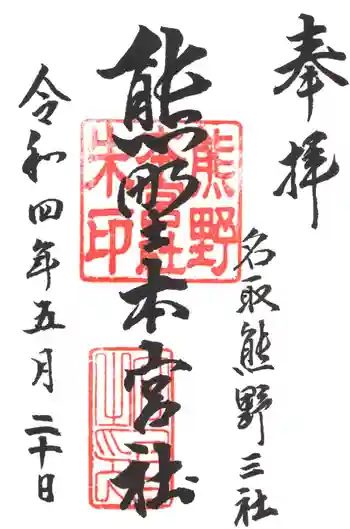 奉拝
名取熊野三社
熊野本宮社
令和四年五月二十日
熊野
朱印